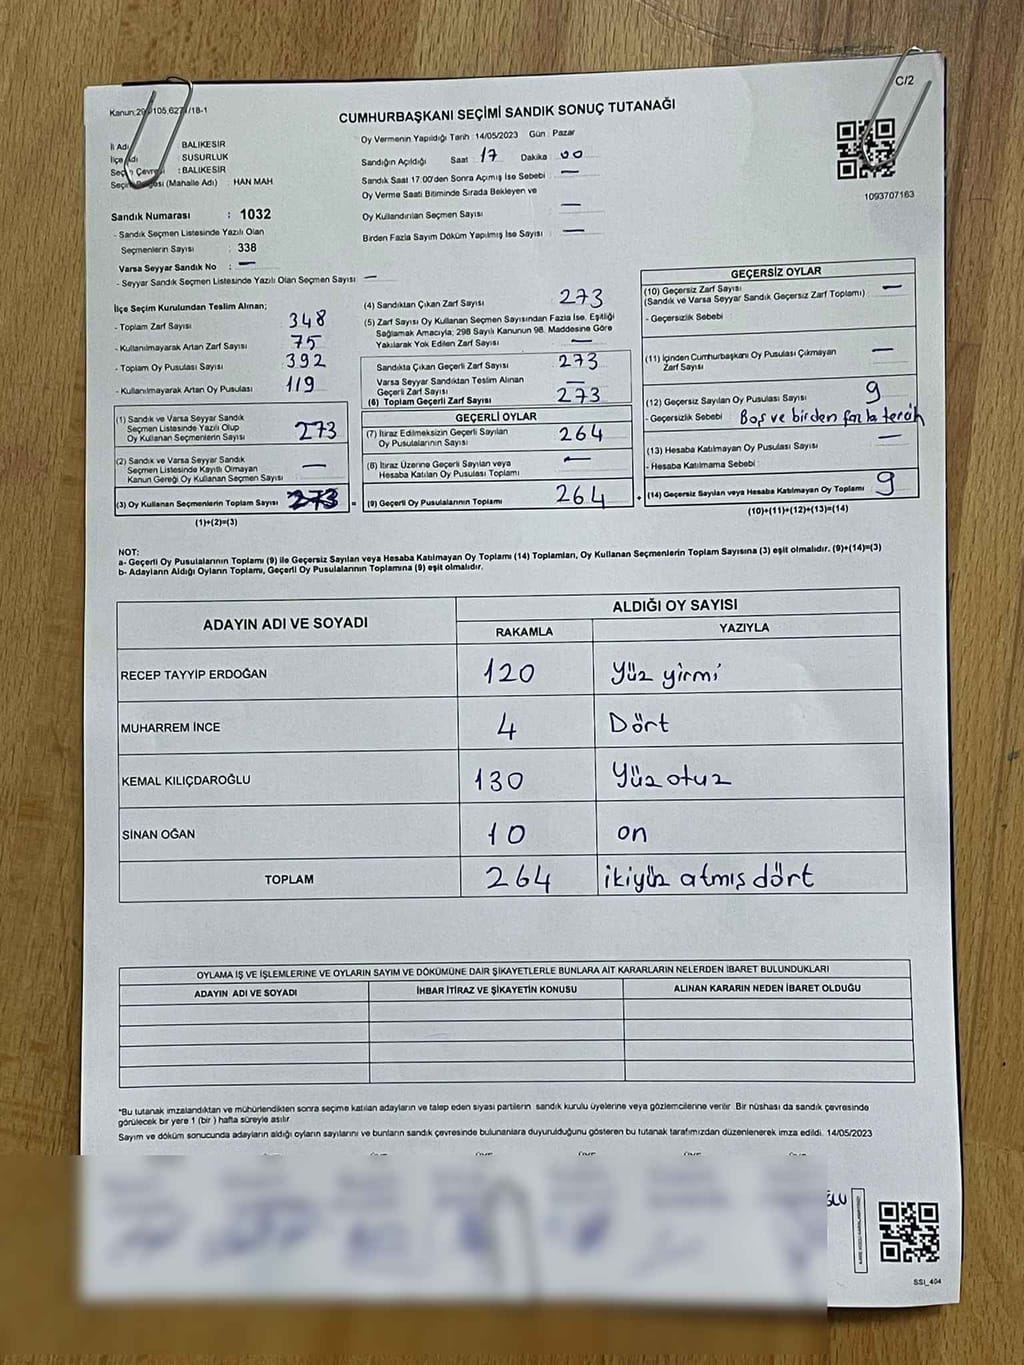 C/2
CUMHURBAŞKANI SEÇİMİ SANDIK SONUÇ TUTANAĞI
İl Adı BALIKESİR
İlçe Adı SUSURLUK
Seçim Çevresi : BALIKESİR
(Mahalle Adı) : HAN MAH
Sandık Numarası : 1032
- Sandık Seçmen Listesinde Yazılı Olan
Seçmenlerin Sayısı : 338
Varsa Seyyar Sandık No : —
- Seyyar Sandık Seçmen Listesinde Yazılı Olan Seçmen Sayısı —
Oy Vermenin Yapıldığı Tarih : 14/05/2023 Gün : Pazar
Sandığın Açıldığı Saat : 17 Dakika : 00
Sandık Saat 17:00'den Sonra Açımış İse Sebebi : —
Oy Verme Saati Bitiminde Sırada Bekleyen ve
Oy Kullandırılan Seçmen Sayısı —
Birden Fazla Sayım Döküm Yapılmış İse Sayısı : —
1093707163
İlçe Seçim Kurulundan Teslim Alınan;
- Toplam Zarf Sayısı : 348
- Kullanılmayarak Artan Zarf Sayısı : 75
- Toplam Oy Pusulası Sayısı : 392
- Kullanılmayarak Artan Oy Pusulası : 119
(1) Sandık ve Varsa Seyyar Sandık
Seçmen Listesinde Yazılı Olup
Oy Kullanan Seçmenlerin Sayısı 273
(2) Sandık ve Varsa Seyyar Sandık
Seçmen Listesinde Kayıtlı Olmayan
Kanun Gereği Oy Kullanan Seçmen Sayısı —
(3) Oy Kullanan Seçmenlerin Toplam Sayısı 273 =
(1)+(2)=(3)
(4) Sandıktan Çıkan Zarf Sayısı 273
(5) Zarf Sayısı Oy Kullanan Seçmen Sayısından Fazla İse, Eşitliği
Sağlamak Amacıyla; 298 Sayılı Kanunun 98. Maddesine Göre
Yakılarak Yok Edilen Zarf Sayısı —
Sandıkta Çıkan Geçerli Zarf Sayısı 273
Varsa Seyyar Sandıktan Teslim Alınan
Geçerli Zarf Sayısı —
(6) Toplam Geçerli Zarf Sayısı 273
GEÇERLİ OYLAR
(7) İtiraz Edilmeksizin Geçerli Sayılan
Oy Pusulalarının Sayısı 264
(8) İtiraz Üzerine Geçerli Sayılan veya
Hesaba Katılan Oy Pusulası Toplamı —
(9) Geçerli Oy Pusulalarının Toplamı 264 +
GEÇERSİZ OYLAR
(10) Geçersiz Zarf Sayısı
(Sandık ve Varsa Seyyar Sandık Geçersiz Zarf Toplamı) : —
- Geçersizlik Sebebi :
(11) İçinden Cumhurbaşkanı Oy Pusulası Çıkmayan
Zarf Sayısı —
(12) Geçersiz Sayılan Oy Pusulası Sayısı 9
- Geçersizlik Sebebi : Boş ve birden fazla tercih
(13) Hesaba Katılmayan Oy Pusulası Sayısı —
- Hesaba Katılmama Sebebi :
(14) Geçersiz Sayılan veya Hesaba Katılmayan Oy Toplamı 9
(10)+(11)+(12)+(13)=(14)
NOT:
a- Geçerli Oy Pusulalarının Toplamı (9) ile Geçersiz Sayılan veya Hesaba Katılmayan Oy Toplamı (14) Toplamları, Oy Kullanan Seçmenlerin Toplam Sayısına (3) eşit olmalıdır. (9)+(14)=(3)
b- Adayların Aldığı Oyların Toplamı, Geçerli Oy Pusulalarının Toplamına (9) eşit olmalıdır.
ADAYIN ADI VE SOYADI ALDIĞI OY SAYISI
RAKAMLA YAZIYLA
RECEP TAYYİP ERDOĞAN 120 Yüz yirmi
MUHARREM İNCE 4 Dört
KEMAL KILIÇDAROĞLU 130 Yüz otuz
SİNAN OĞAN 10 on
TOPLAM 264 ikiyüz atmış dört
OYLAMA İŞ VE İŞLEMLERİNE VE OYLARIN SAYIM VE DÖKÜMÜNE DAİR ŞİKAYETLERLE BUNLARA AİT KARARLARIN NELERDEN İBARET BULUNDUKLARI
ADAYIN ADI VE SOYADI İHBAR İTİRAZ VE ŞİKAYETİN KONUSU ALINAN KARARIN NEDEN İBARET OLDUĞU
*Bu tutanak imzalandıktan ve mühürlendikten sonra seçime katılan adayların ve talep eden siyasi partilerin sandık kurulu üyelerine veya gözlemcilerine verilir. Bir nüshası da sandık çevresinde
görülecek bir yere 1 (bir) hafta süreyle asılır.
Sayım ve döküm sonucunda adayların aldığı oyların sayılarını ve bunların sandık çevresinde bulunanlara duyurulduğunu gösteren bu tutanak tarafımızdan düzenlenerek imza edildi. 14/05/2023
SSI_404